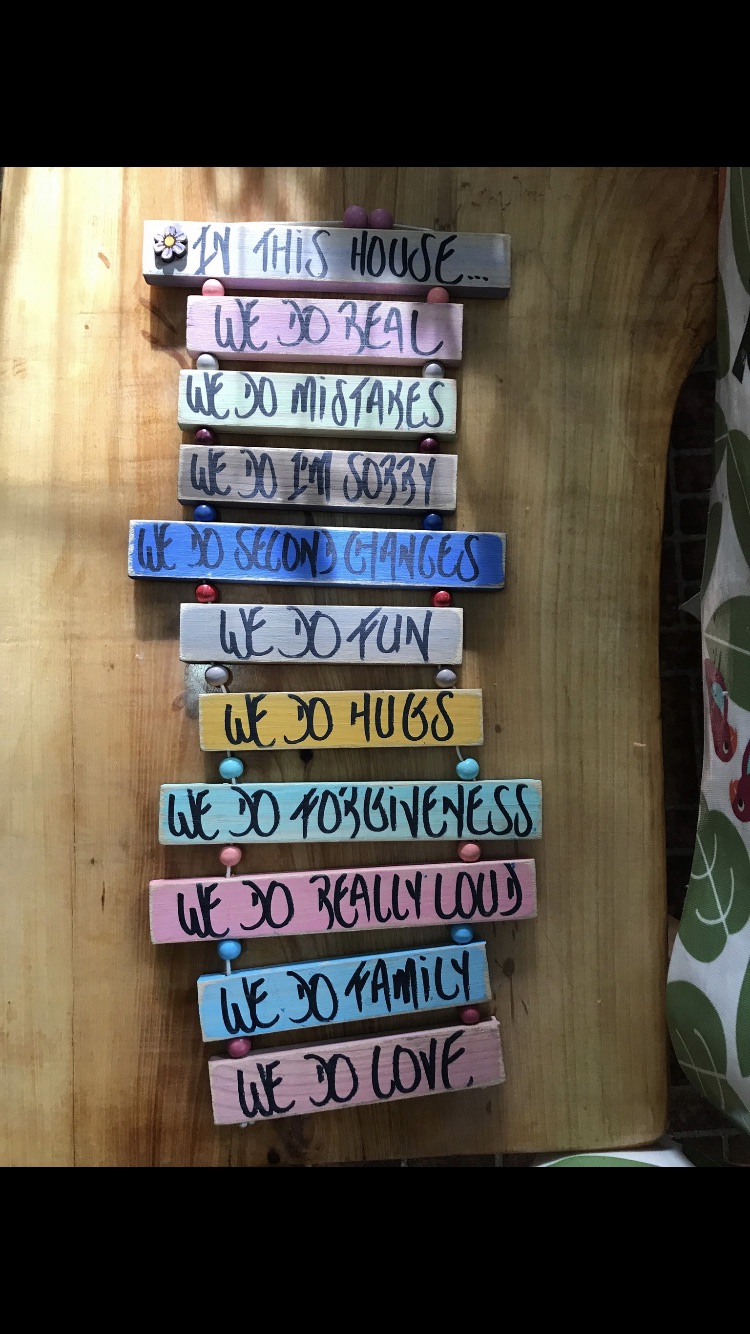 IN THIS HOUSE...
WE DO REAL
WE DO MISTAKES
WE DO I'M SORRY
WE DO SECOND CHANCES
WE DO FUN
WE DO HUGS
WE DO FORGIVENESS
WE DO REALLY LOUD
WE DO FAMILY
WE DO LOVE.